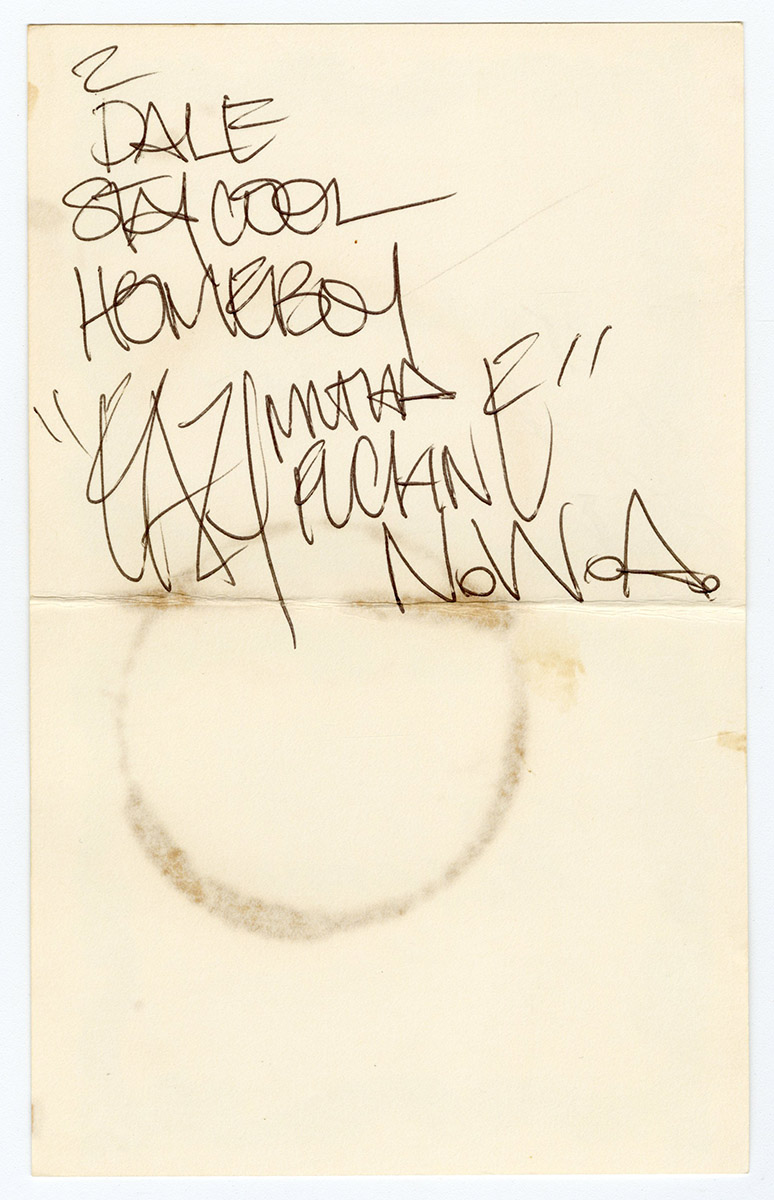 2
DALE
STAY COOL
HOMEBOY
"EAZY MUTHA E"
FUCKIN
N.W.A.